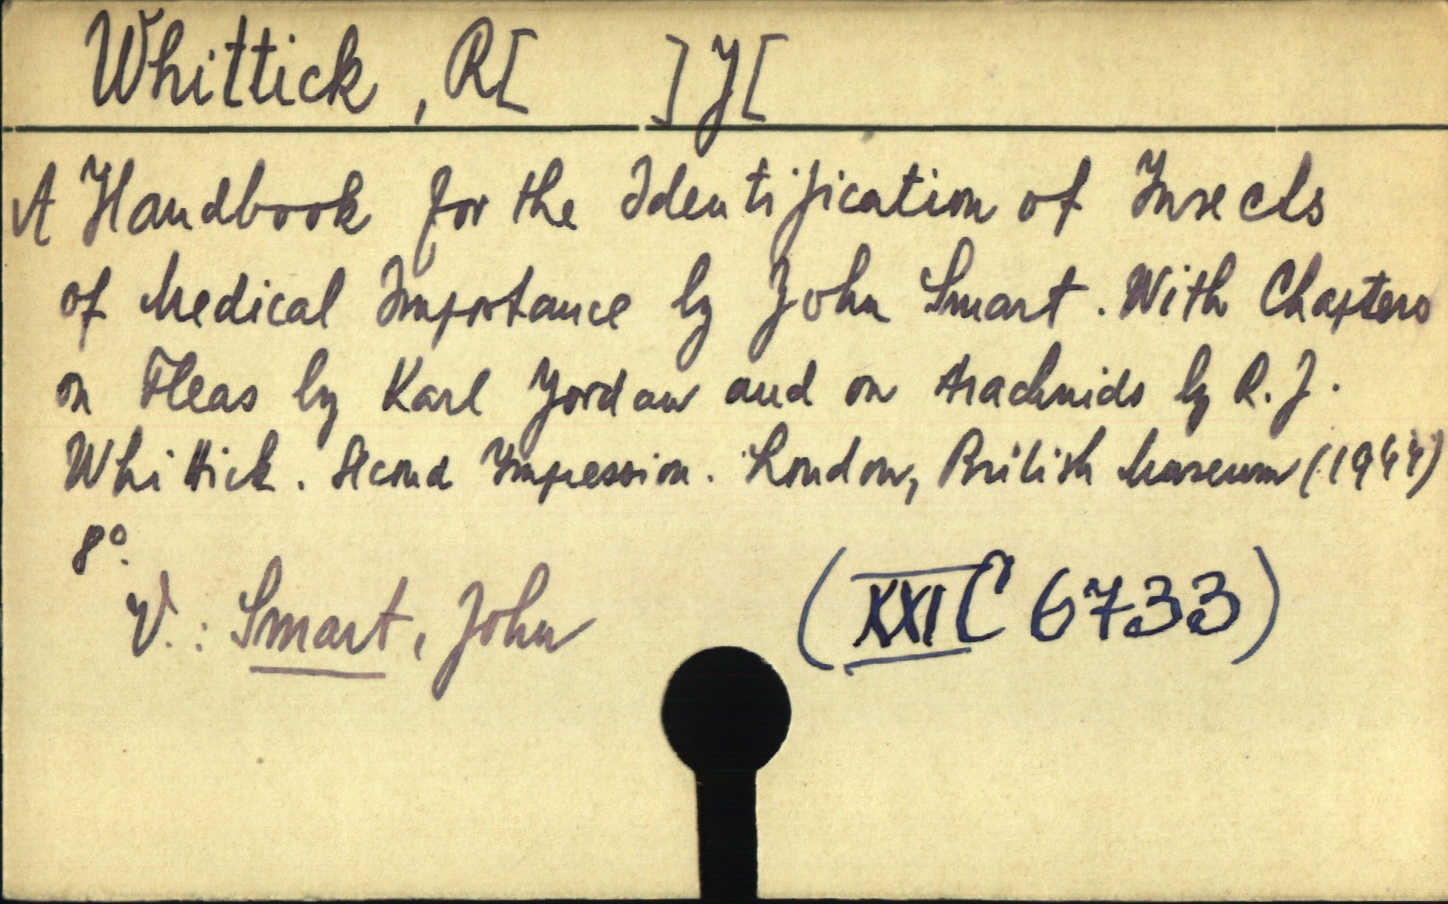 Whittick, R[ ] J[
A Handbook for the Identification of Insects
of Medical Importance by John Smart. With Chapters
on Fleas by Karl Jordan and on Arachnids by R. J.
Whittick. Second Impression. London, British Museum (1944)
8°.
V.: Smart, John
(XXI C 6733)